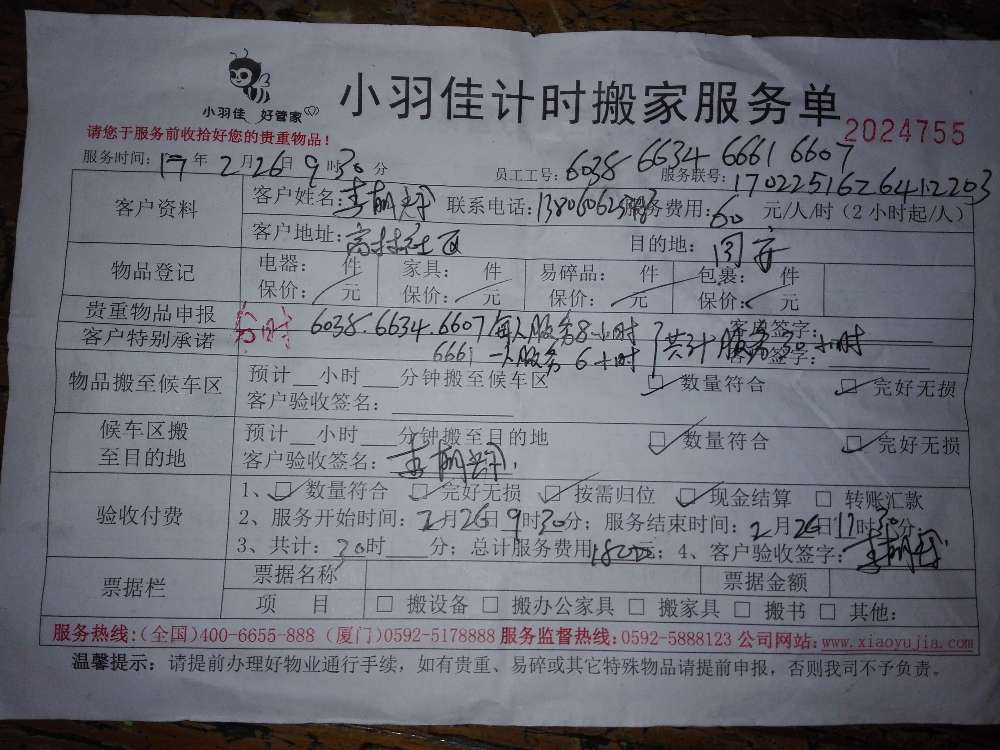 小羽佳 好管家
小羽佳计时搬家服务单
2024755
请您于服务前收拾好您的贵重物品！
服务时间：17年2月26日9时30分 员工工号：6038 6634 6661 6607
服务联号：170225162641 2203
客户资料 客户姓名： 联系电话： 服务费用：60 元/人/时（2小时起/人）
客户地址：高林社区 目的地：同安
物品登记 电器： 件 家具： 件 易碎品： 件 包裹： 件
保价： 元 保价： 元 保价： 元 保价： 元
贵重物品申报 客户签字：
分时 6038.6634.6607每人服务8小时
客户特别承诺 客户签字：
6661 一人服务6小时 共计服务30小时
物品搬至候车区 预计__小时___分钟搬至候车区 数量符合 完好无损
客户验收签名：
候车区搬至目的地 预计__小时___分钟搬至目的地 数量符合 完好无损
客户验收签名：
验收付费 1、数量符合 完好无损 按需归位 现金结算 转账汇款
2、服务开始时间：2月26日9时30分；服务结束时间：2月26日17时30分；
3、共计：30时___分；总计服务费用1800元；4、客户验收签字：
票据栏 票据名称 票据金额
项 目 □ 搬设备 □ 搬办公家具 □ 搬家具 □ 搬书 □ 其他：
服务热线：（全国）400-6655-888（厦门）0592-5178888 服务监督热线：0592-5888123 公司网站：www.xiaoyujia.com
温馨提示：请提前办理好物业通行手续，如有贵重、易碎或其它特殊物品请提前申报，否则我司不予负责。